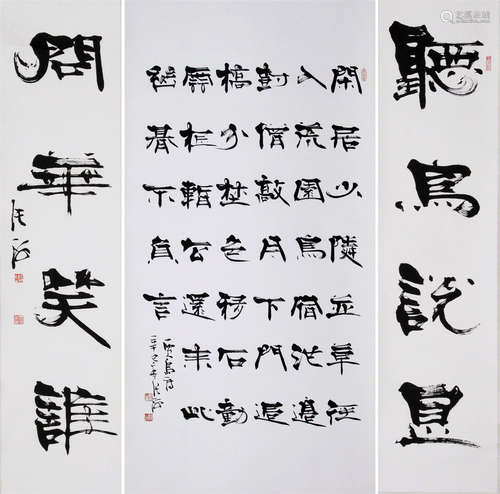 聽鳥說甚
閑居少隣並草徑
入荒園鳥宿池邊
樹僧敲月下門過
橋分埜色移石動
雲根暫去還来此
幽朞不負言
賈島詩
問華笑誰
張海